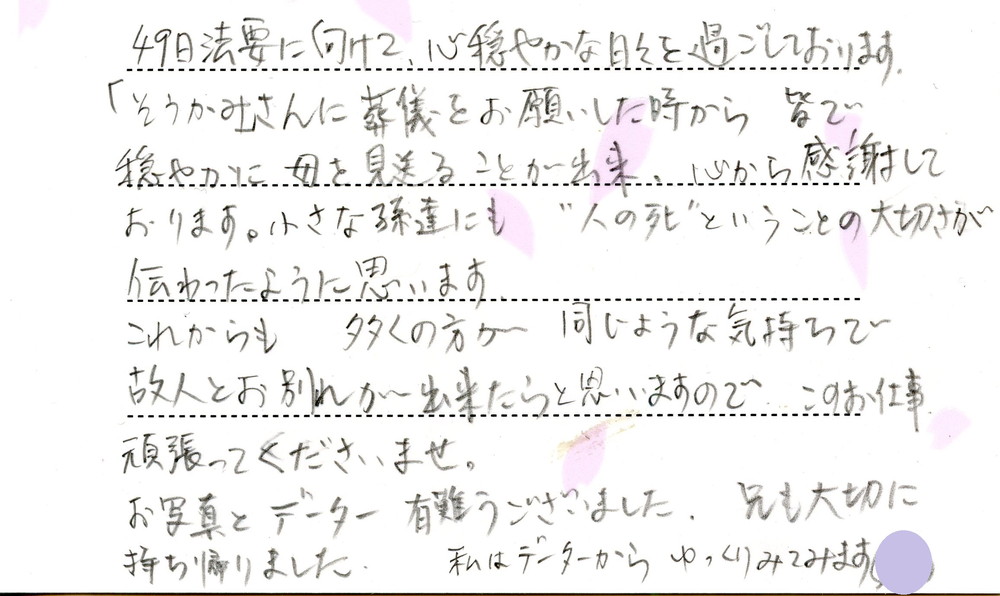 49日法要に向けて、心穏やかな日々を過ごしております。
「そうかみ」さんに葬儀をお願いした時から 皆で
穏やかに母を見送ることが出来、心から感謝して
おります。小さな孫達にも "人の死"ということの大切さが
伝わったように思います
これからも 多くの方が 同じような気持ちで
故人とお別れが出来たらと思いますので このお仕事
頑張ってくださいませ。
お写真とデーター 有難うございました。兄も大切に
持ち帰りました. 私はデーターから ゆっくりみてみます